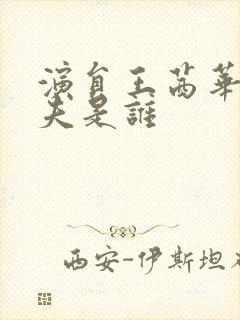 演員王茜華
夫是誰
西安-伊斯坦